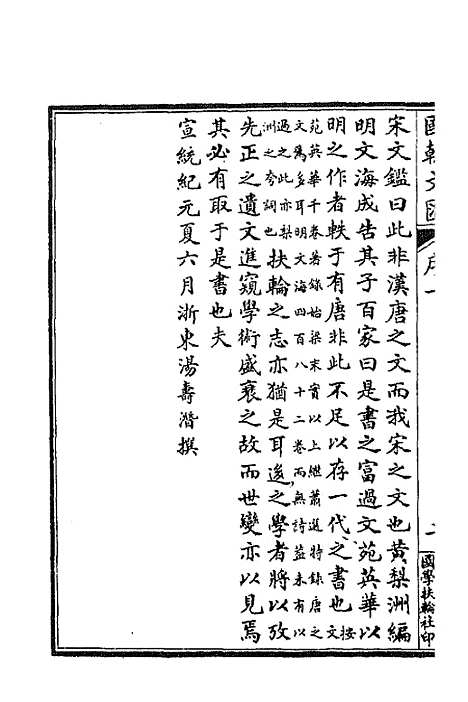 國朝文匯 序 一 國學扶輪社印
宋文鑑曰此非漢唐之文而我宋之文也黃梨洲編
明文海成告其子百家曰是書之富過文苑英華以
明之作者軼于有唐非此不足以存一代之書也按文
苑英華千卷著錄始梁末實以上繼蕭選特錄唐之
文爲多耳明文海四百八十二卷而無詩葢未有以
過之此亦梨
洲之夸詞也扶輪之志亦猶是耳後之學者將以攷
先正之遺文進窺學術盛衰之故而世變亦以見焉
其必有取于是書也夫
宣統紀元夏六月浙東湯壽潛撰